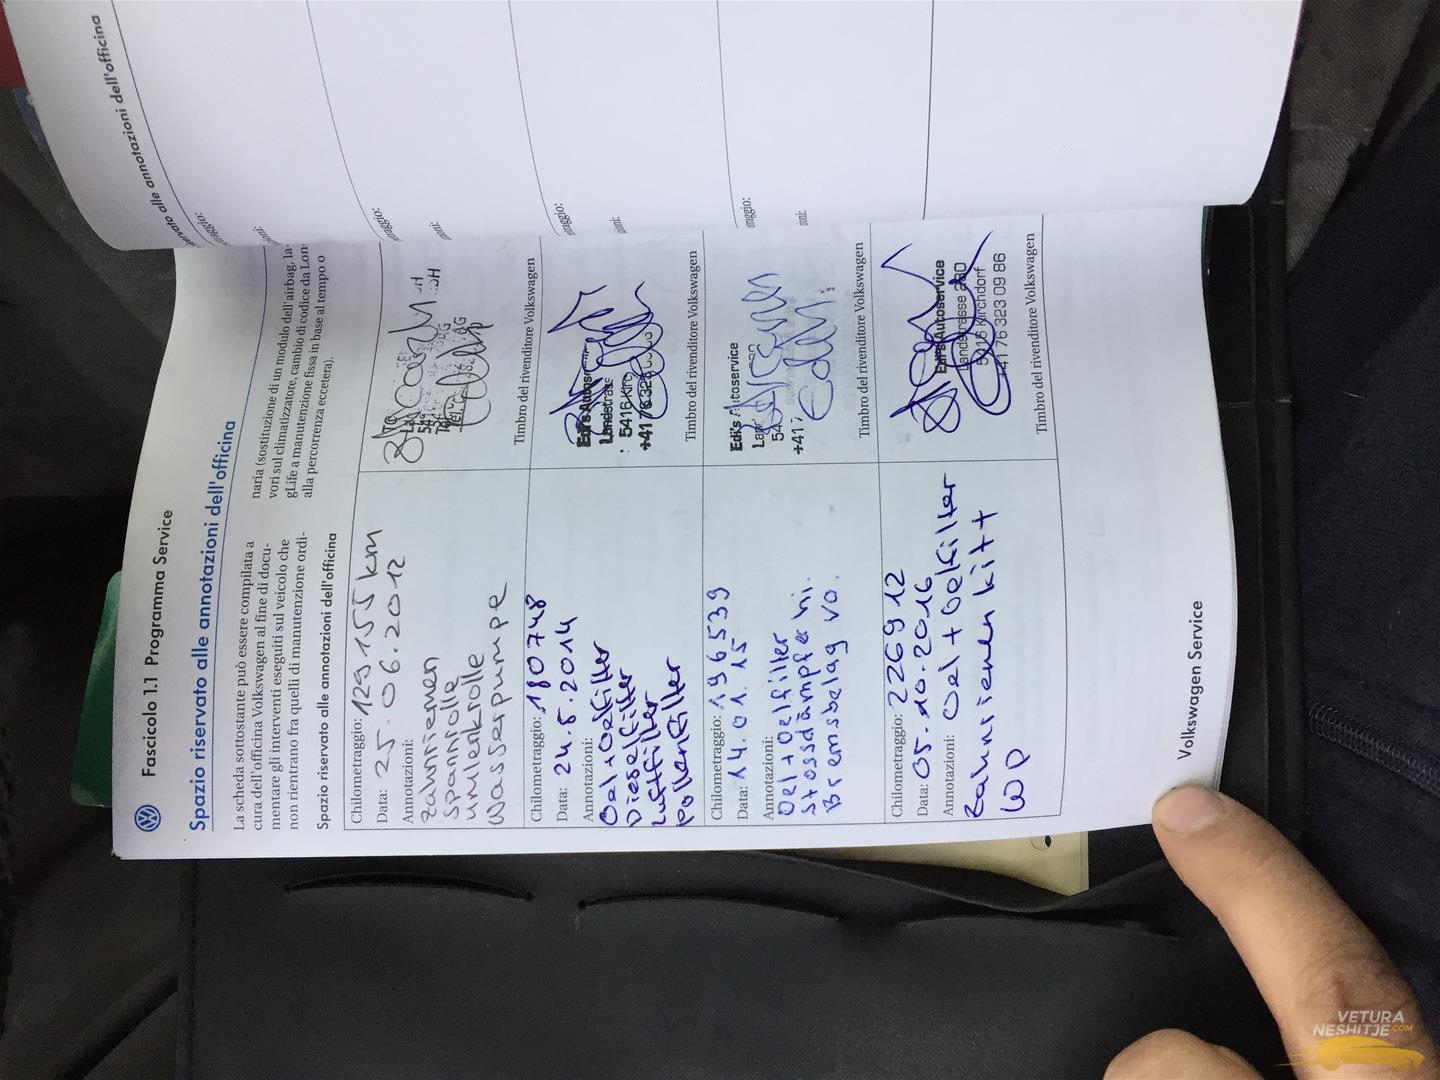 Fascicolo 1.1 Programma Service
Spazio riservato alle annotazioni dell'officina
La scheda sottostante può essere compilata a
cura dell'officina Volkswagen al fine di docu-
mentare gli interventi eseguiti sul veicolo che
non rientrano fra quelli di manutenzione ordi-
naria (sostituzione di un modulo dell'airbag, la-
vori sul climatizzatore, cambio di codice da Lon-
gLife a manutenzione fissa in base al tempo o
alla percorrenza eccetera).
Spazio riservato alle annotazioni dell'officina
Chilometraggio: 129155 km
Data: 25.06.2012
Annotazioni:
Zahnriemen
Spannrolle
umlenkrolle
Wasserpumpe
Timbro del rivenditore Volkswagen
Chilometraggio: 180748
Data: 24.5.2014
Annotazioni:
Oel+Oelfilter
Dieselfilter
Luftfilter
pollenfilter
Edi's Autoser
Landstrasse
5416 Kirc
+41 76 323
Timbro del rivenditore Volkswagen
Chilometraggio: 196539
Data: 14.01.15
Annotazioni:
Oel+Oelfilter
Stossdämpfer hi.
Bremsbelag vo.
Edi's Autoservice
+41 7
Timbro del rivenditore Volkswagen
Chilometraggio: 226912
Data: 05.10.2016
Annotazioni: Oel+Oelfilter
Zahnriemen kitt
WP
Edi's Autoservice
Landstrasse
5416 Kirchdorf
+41 76 323 09 86
Timbro del rivenditore Volkswagen
Volkswagen Service
servato alle annotazioni dell'officina
VETURA
NESHITJE.COM